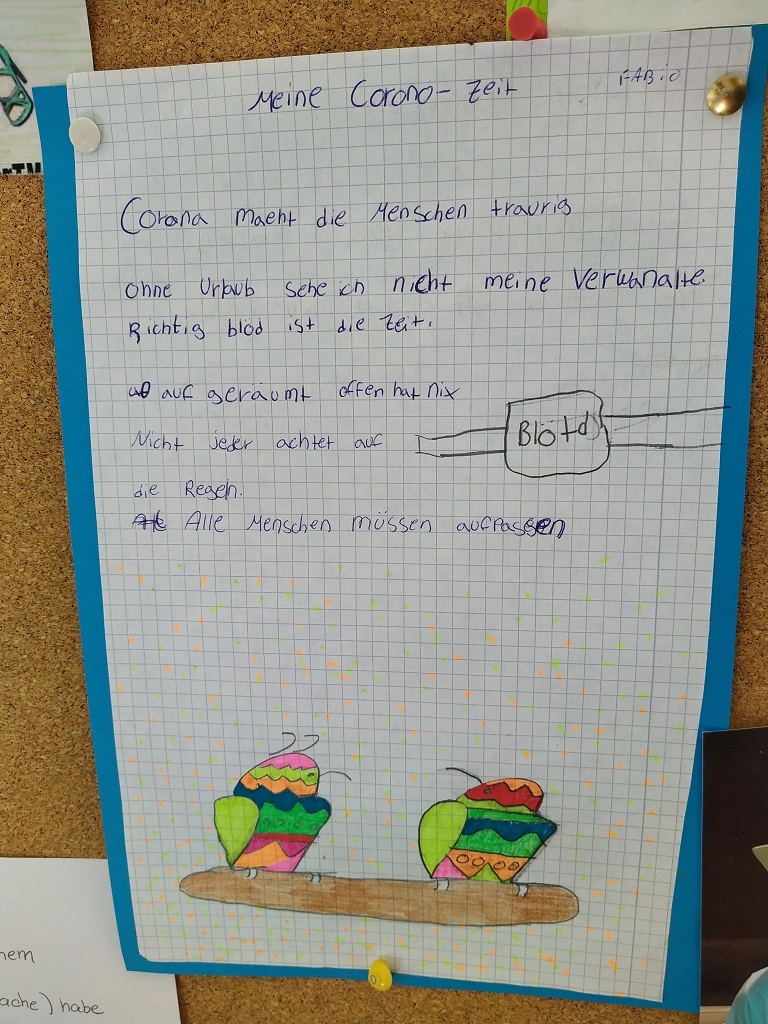 Meine Corono-Zeit
FABio
Corona maeht die Menschen traurig
ohne Urlaub sehe ich nicht meine Verwanalte.
Richtig blöd ist die Zeit.
auf geräumt offen hat nix
Nicht jeder achtet auf
die Regeln.
Alle Menschen müssen aufpassen
nem
ache) habe